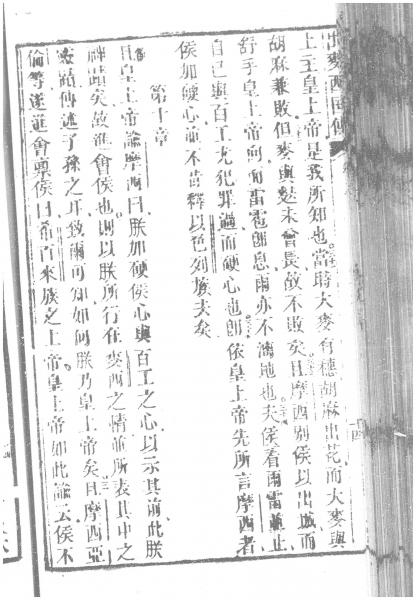 出麥西國傳
上主皇上帝是我所知也當時大麥有穗胡麻出花而大麥與
胡麻兼敗但麥與麩未曾長故不敗矣且摩西別侯以出城而
舒手皇上帝向而雷雹即息雨亦不滴地也夫侯看雨雷雹止
自己與百工尤犯罪過而硬心也即依皇上帝先所言摩西者
侯加硬心並不肯釋以色列族夫矣
第十章
且皇上帝諭摩西曰朕加硬侯心與百工之心以示其前此朕
神蹟矣故進會侯也則以朕所行在麥西之情並所表其中之
蹟傳述子孫之耳致爾可知如何朕乃皇上帝矣且摩西亞
倫等遂進會稟侯曰希百來族之上帝皇上帝如此諭云侯不